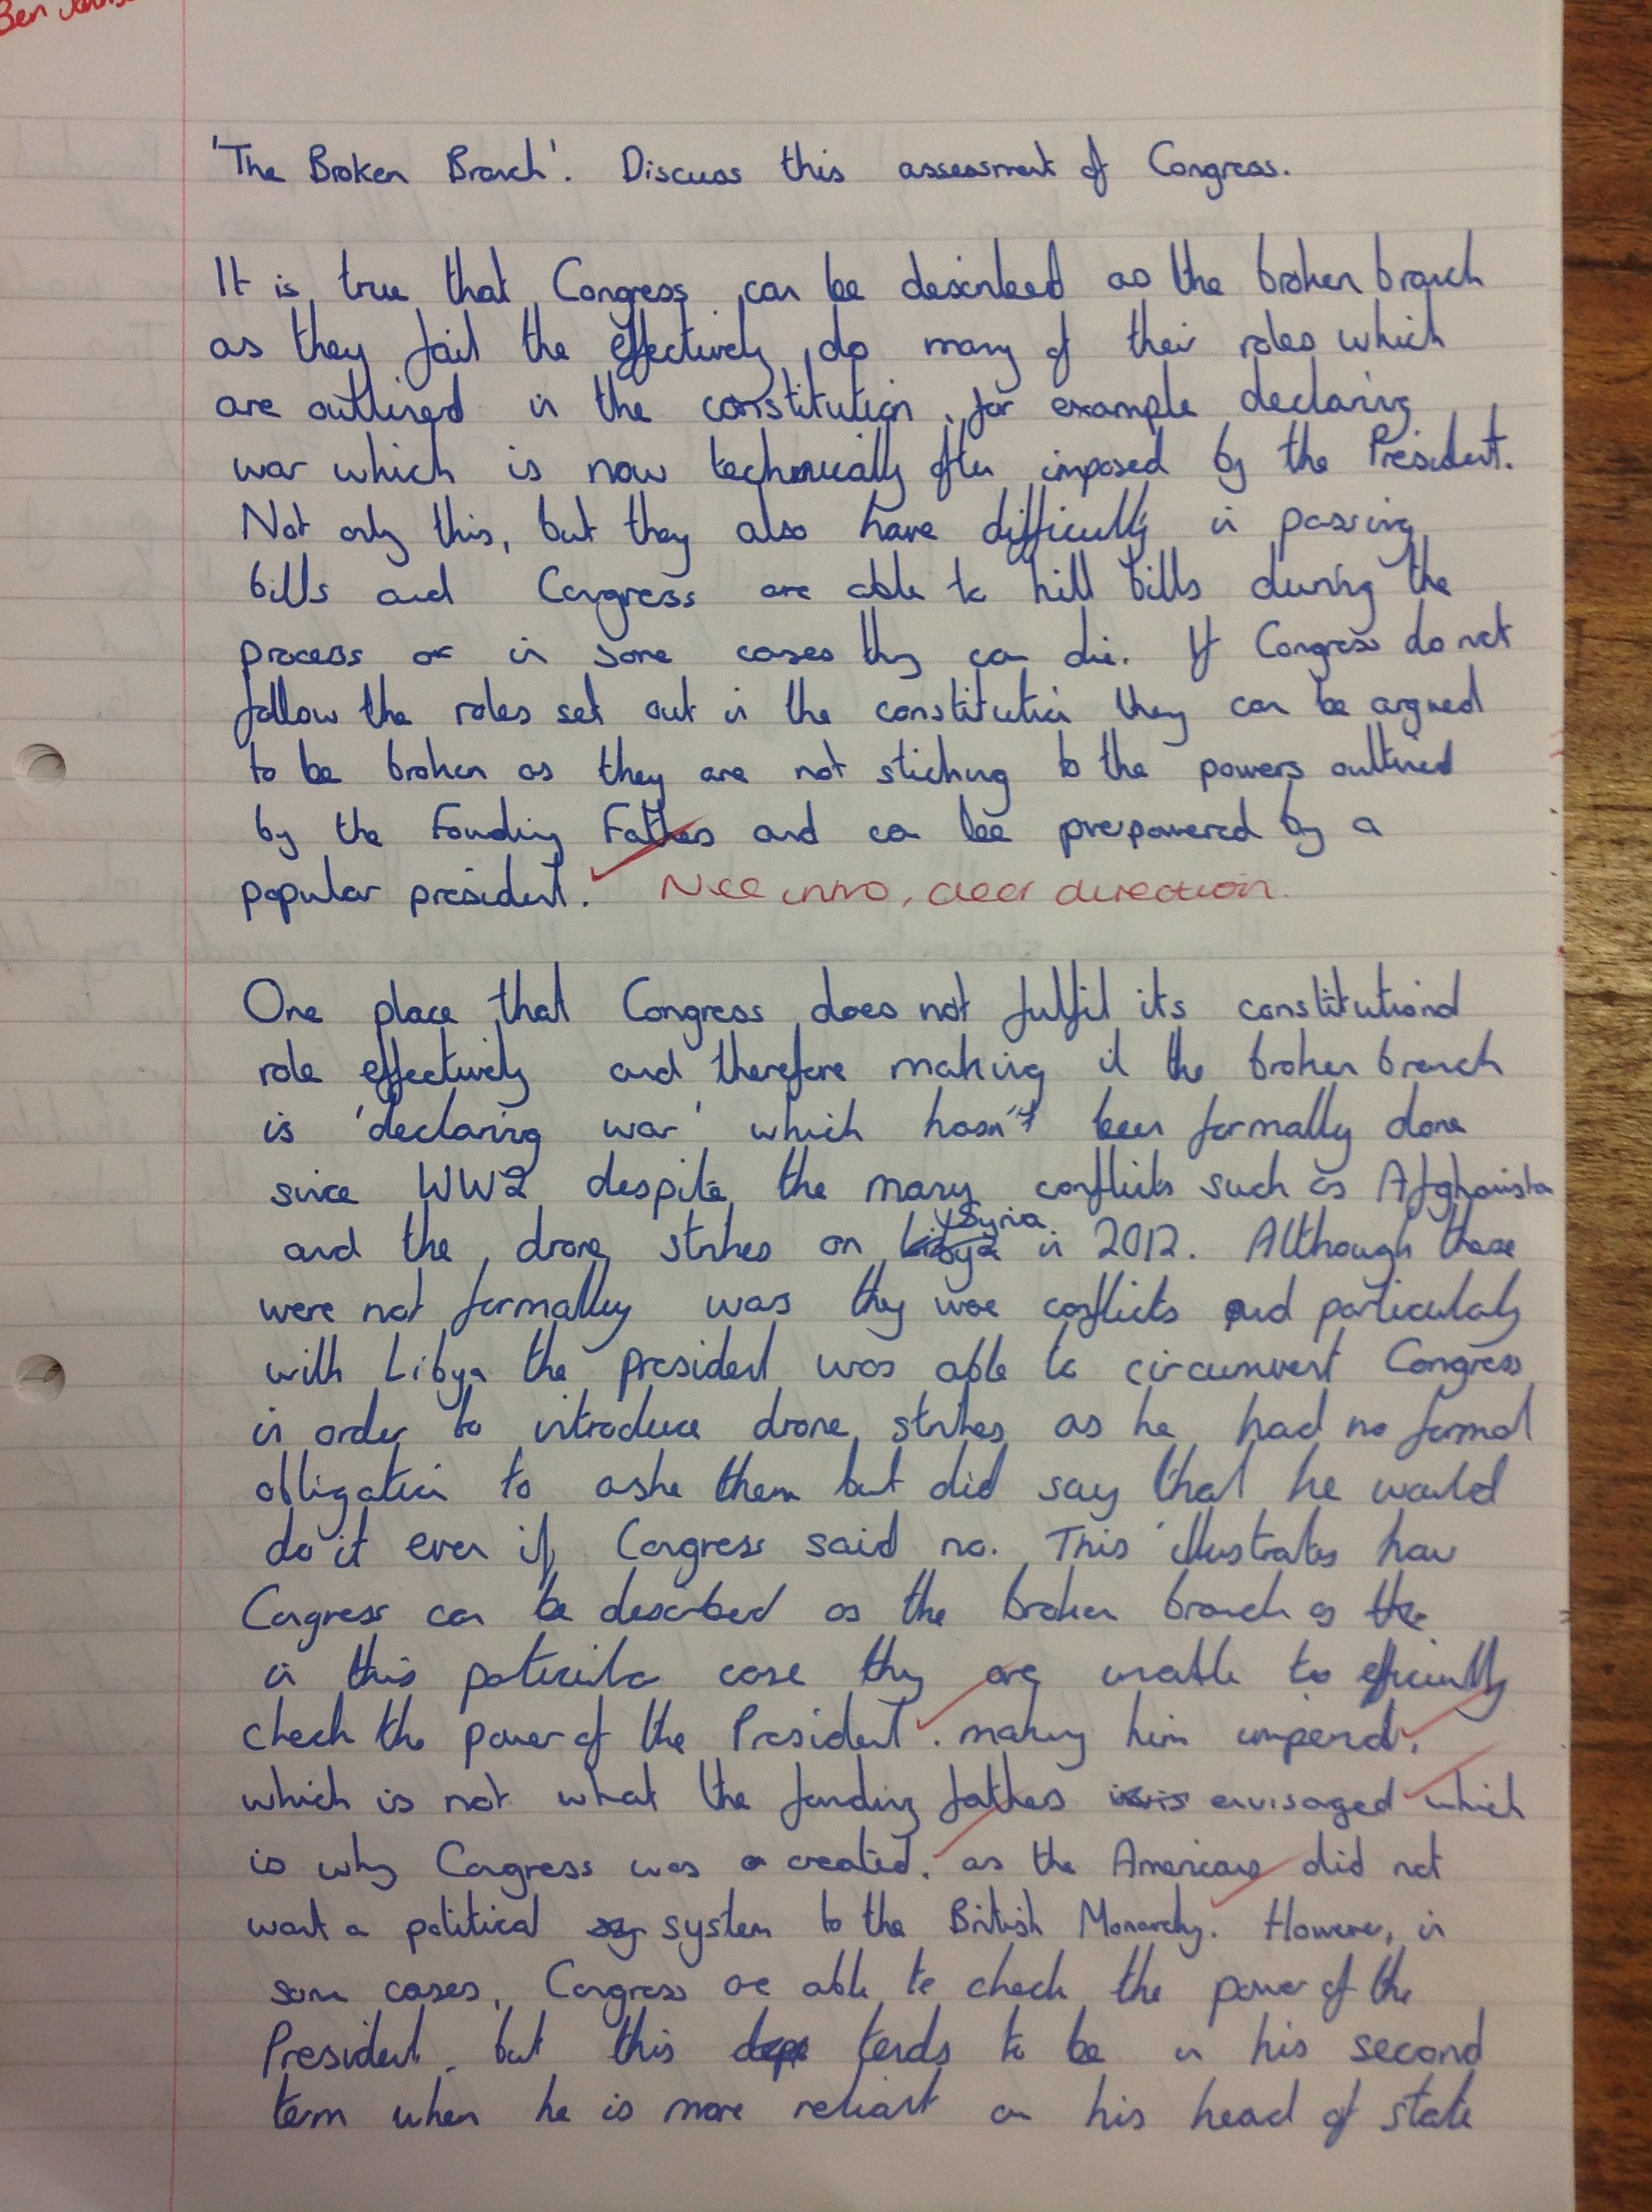 Ben
'The Broken Branch'. Discuss this assessment of Congress.
It is true that Congress can be described as the broken branch
as they fail the effectively do many of their roles which
are outlined in the constitution, for example declaring
war which is now technically often imposed by the President.
Not only this, but they also have difficulty in passing
bills and Congress are able to kill bills during the
process or in some cases they can die. If Congress do not
follow the roles set out in the constitution they can be argued
to be broken as they are not sticking to the powers outlined
by the Founding Fathers and can be by a
popular president. Nice intro, clear direction.
One place that Congress does not fulfil its constitutional
role effectively and therefore making it the broken branch
is 'declaring war' which hasn't been formally done
since WW2 despite the many conflicts such as Afghanistan
and the drone strikes on Libya Syria in 2012. Although these
were not formally was they were conflicts and particularly
with Libya the president was able to circumvent Congress
in order to introduce drone strikes as he had no formal
obligation to aske them but did say that he would
do it even if Congress said no. This illustrates how
Congress can be described as the broken branch as the
in this particular case they are unable to efficiently
check the power of the President. making him imperial,
which is not what the founding fathers envisaged which
is why Congress was a created. as the Americans did not
want a political sy system to the British Monarchy. However, in
some cases, Congress are able to check the power of the
President, but this tends to be in his second
term when he is more reliant on his head of state